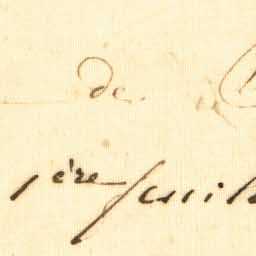 de
1ère feuil